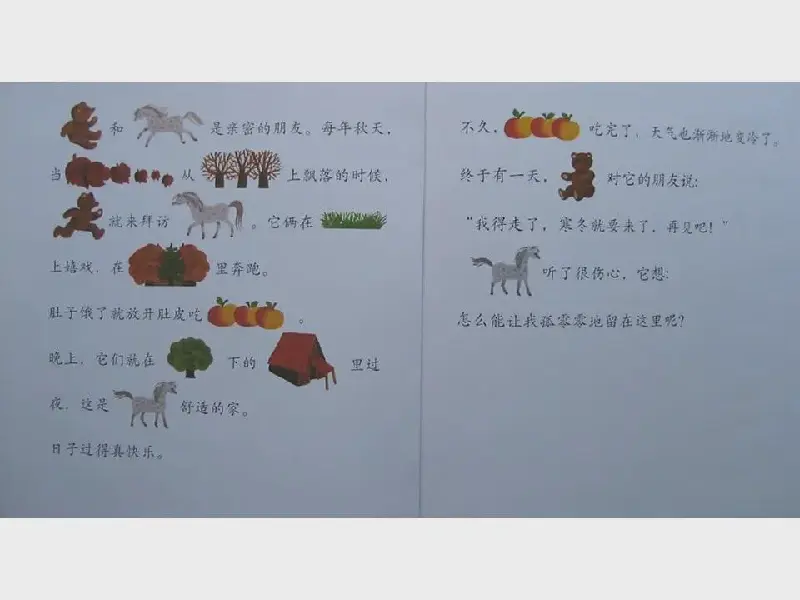 和 是亲密的朋友。每年秋天，
当 从 上飘落的时候，
就来拜访 。它俩在
上嬉戏，在 里奔跑。
肚子饿了就放开肚皮吃 。
晚上，它们就在 下的 里过
夜，这是 舒适的家。
日子过得真快乐。
不久， 吃完了，天气也渐渐地变冷了。
终于有一天， 对它的朋友说：
“我得走了，寒冬就要来了，再见吧！”
听了很伤心，它想：
怎么能让我孤零零地留在这里呢？